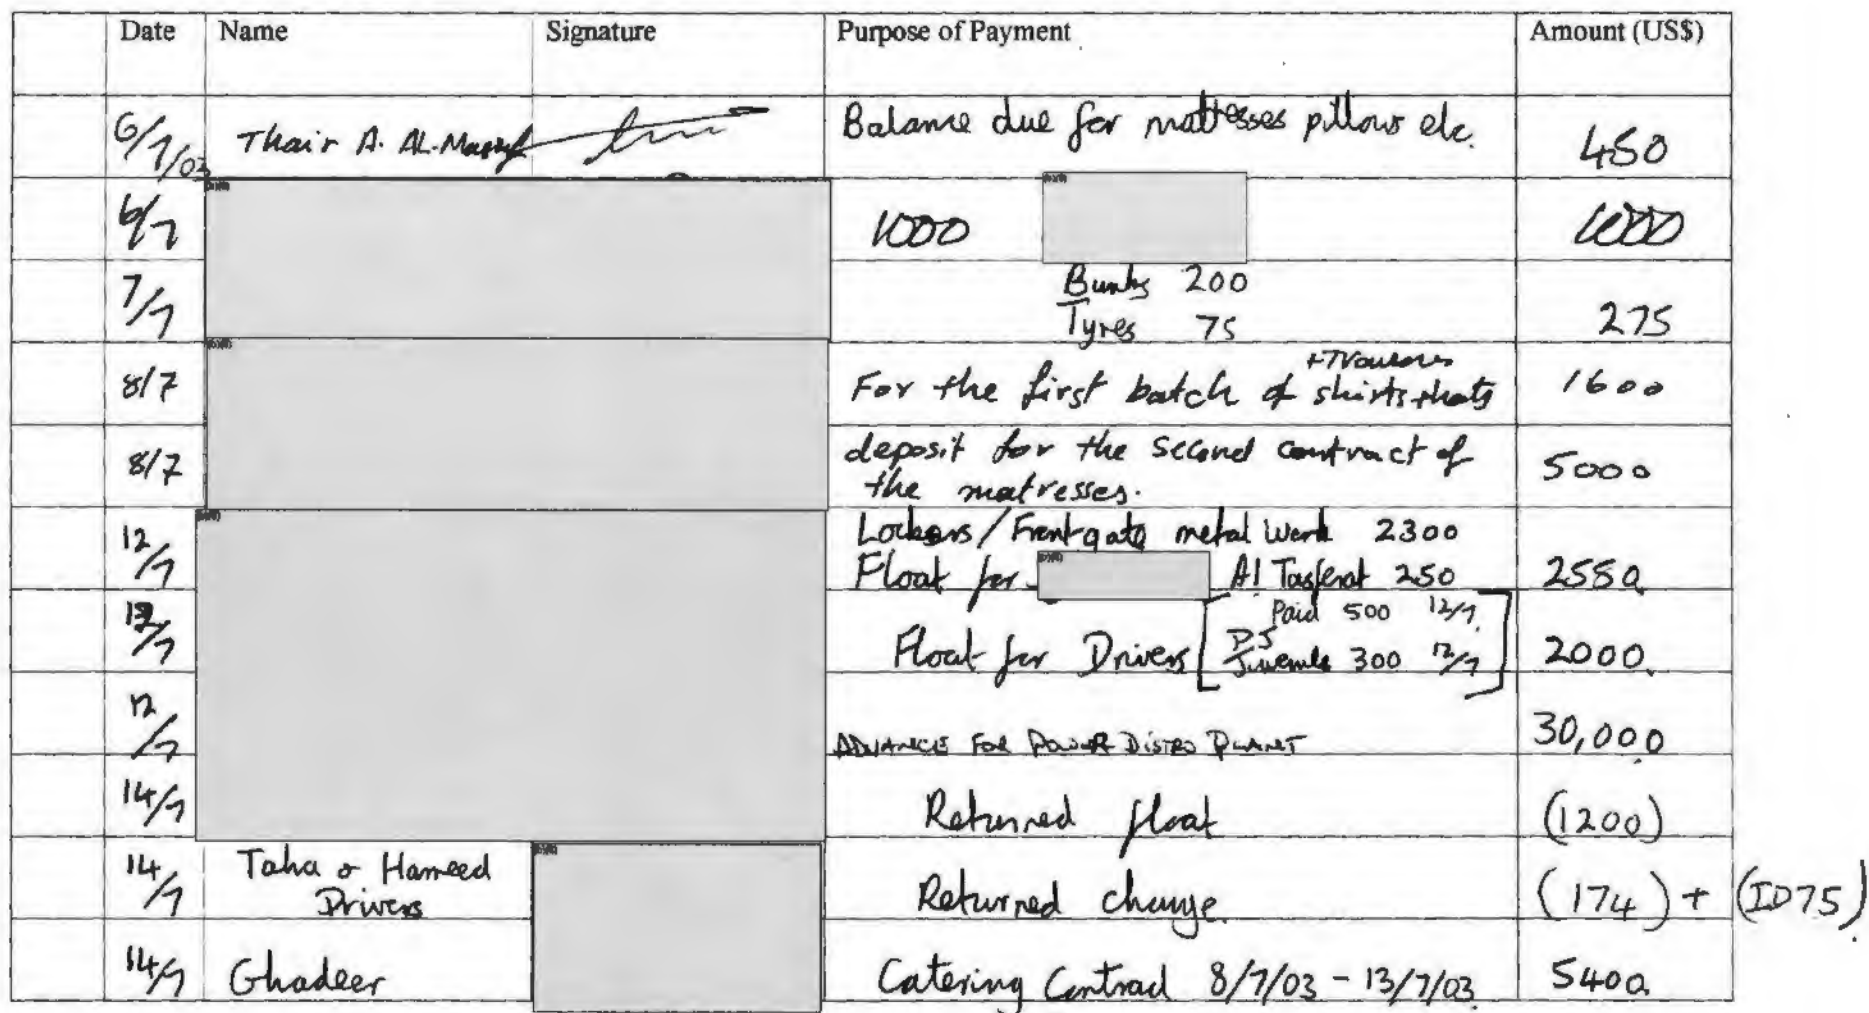 Date Name Signature Purpose of Payment Amount (US$)
6/7/03 Thair A. AL- Balance due for mattesses pillows etc. 450
6/7 1000 1000
7/7 Bunks 200
Tyres 75 275
+Trousers
8/7 For the first batch of shirts 1600
8/7 deposit for the second contract of
the matresses. 5000
12/7 Lockers/Front gate metal work 2300
Float for Al Tasferat 250 2550
Paid 500 12/7
12/7 Float for Drivers [ Juvenile 300 12/7 ] 2000
12/7 ADVANCE FOR POWER DISTRO PLANT 30,000
14/7 Returned float (1200)
14/7 Taha & Hameed
Drivers Returned change. (174) + (ID75)
14/7 Ghadeer Catering Contract 8/7/03 - 13/7/03 5400